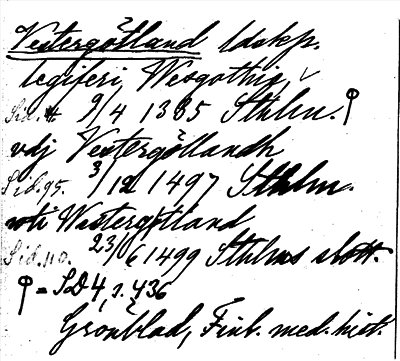 Vestergötland ldskp.
legiferi Wesgothie,
Sid. 9/4 1385 Sthlm. φ
vdj Vestergöllandh
Sid. 95. 3/12 1497 Sthlm.
wti Westergötland
Sid. 110. 23/6 1499 Sthlms slott.
φ = SD 4, s. 436
Grönblad, Finl. med. hist.